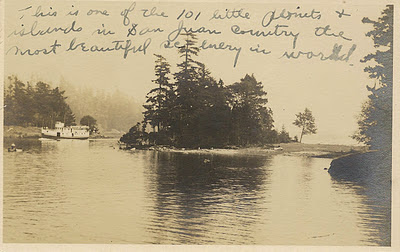 This is one of the 101 little points &
islands in San Juan Country the
most beautiful scenery in world.